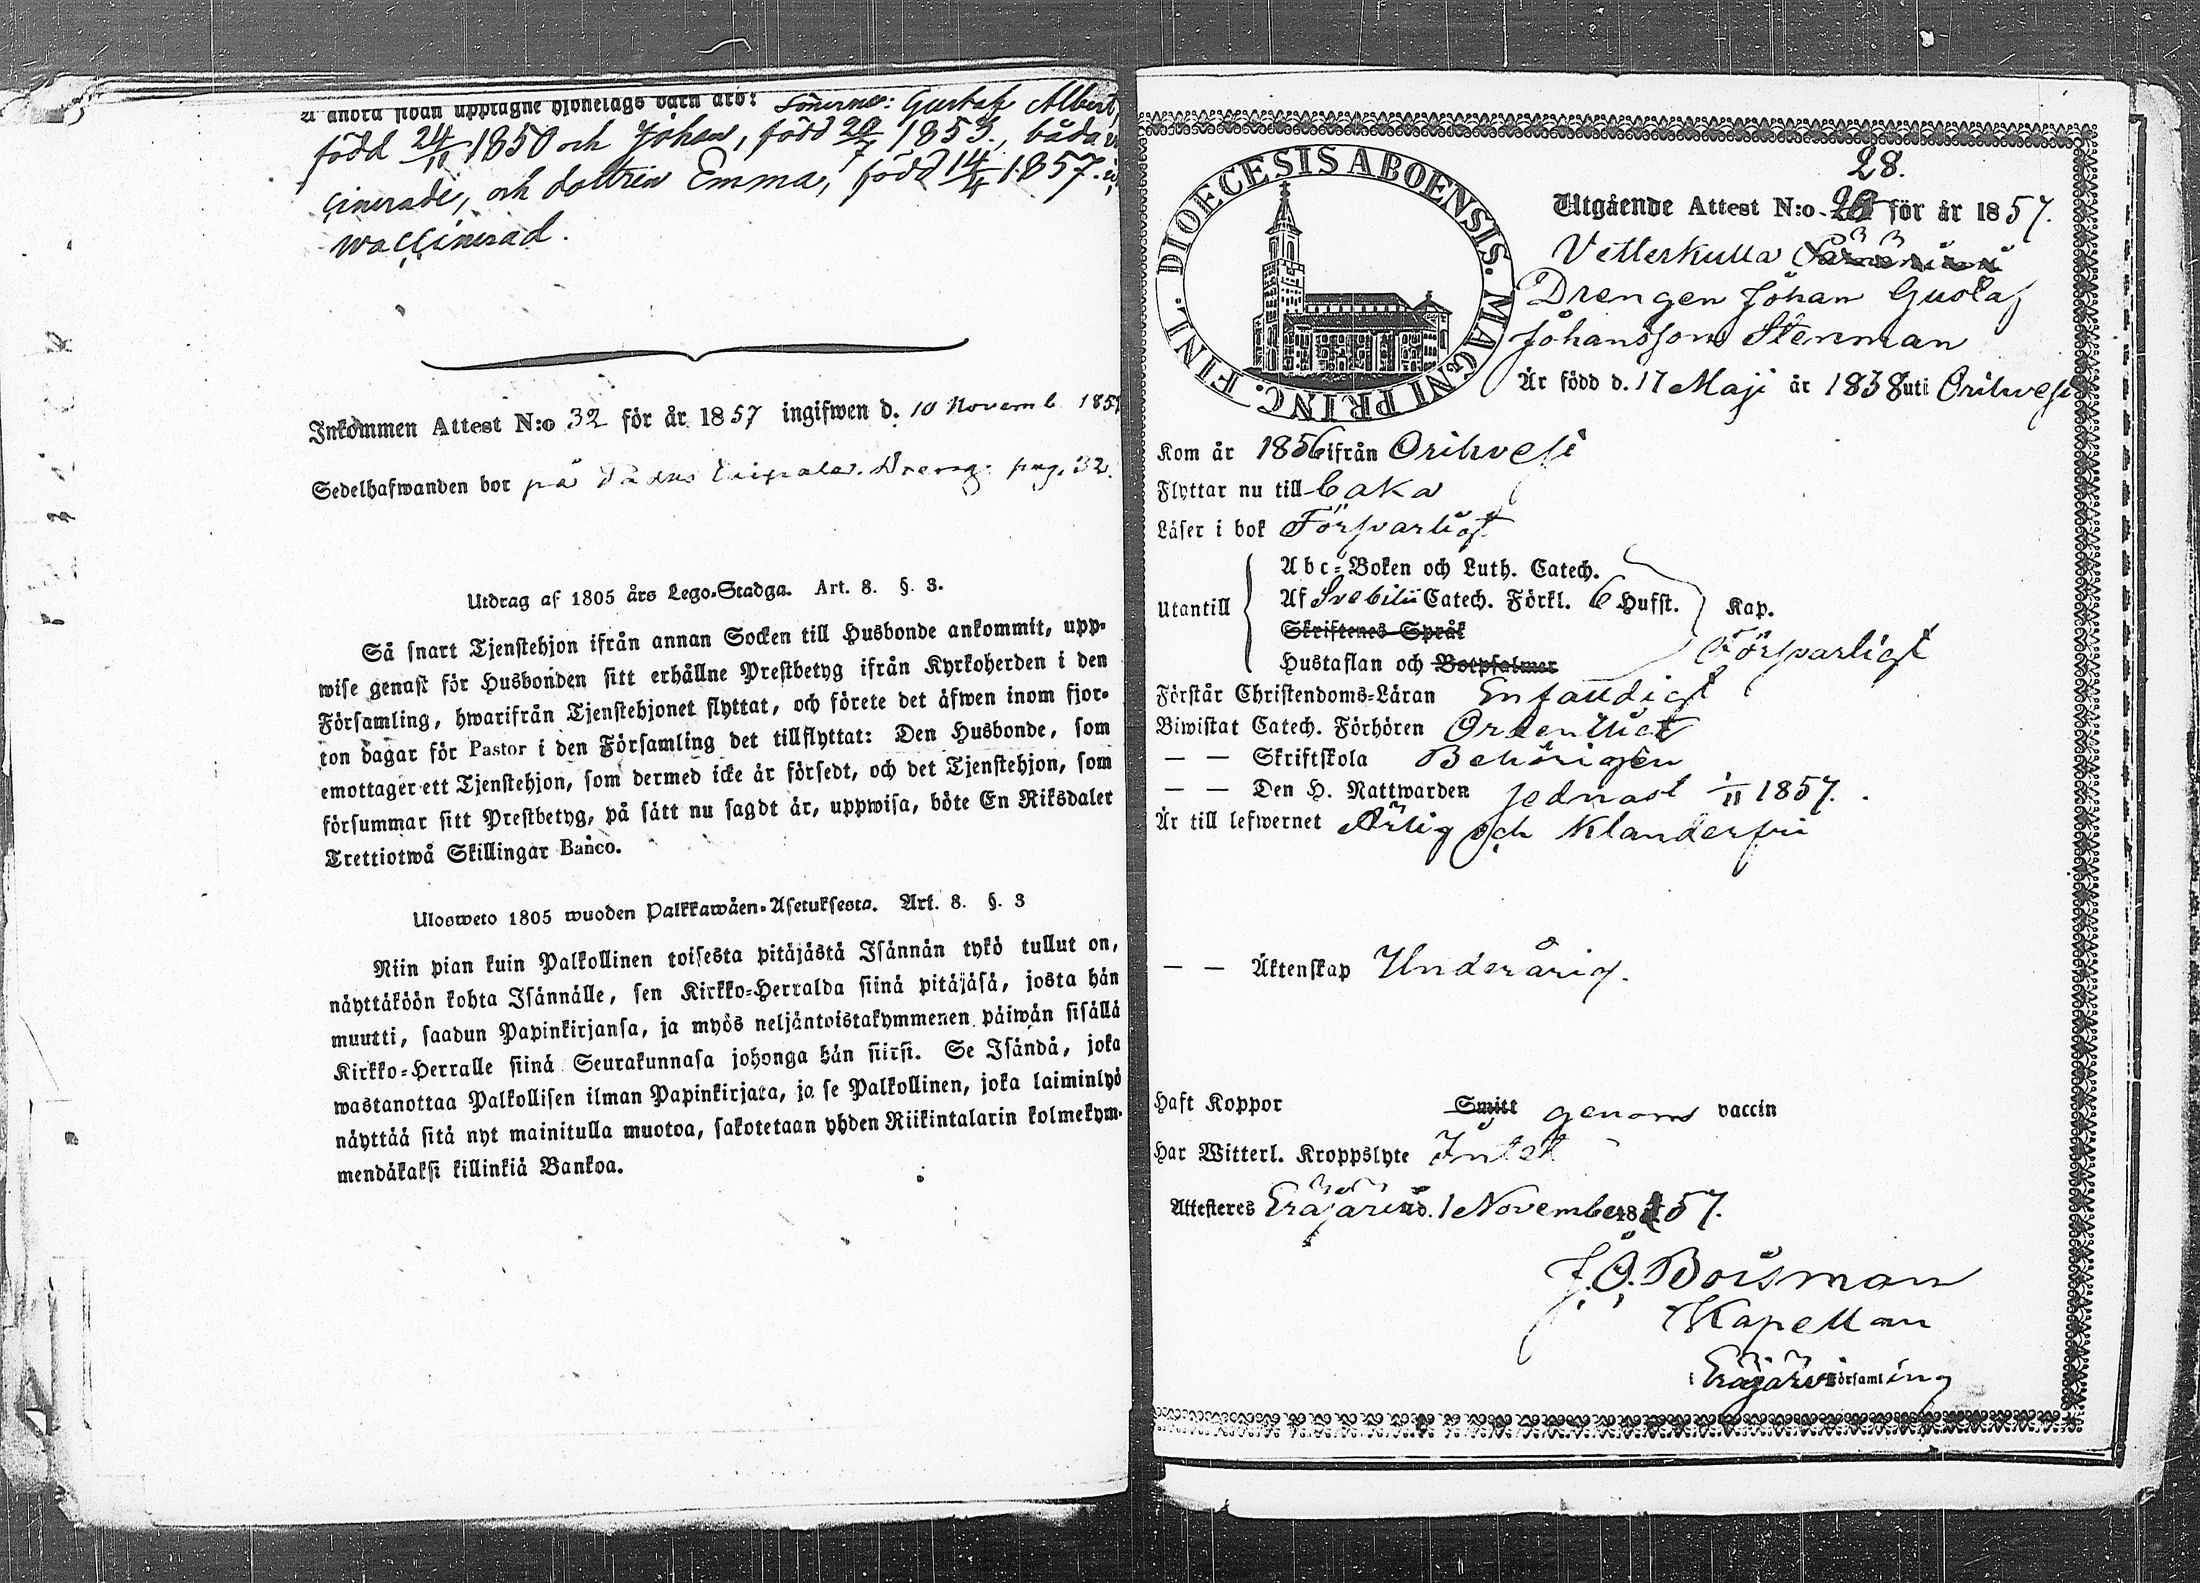 å andra sidan upptagne hjonelags barn äro: Sönerne: Gustaf Albert,
född 24/11 1850 och Johan, född 20/7 1853, båda
cinerade, och dottren Emma, född 14/4 1857.
waccinerad.
Inkommen Attest N:o 32 för år 1857 ingifwen d. 10 Novemb 185
Sedelhafwanden bor på Dreng. pag. 32.
Utdrag af 1805 års Lego-Stadga. Art. 8. §. 3.
Så snart Tjenstehjon ifrån annan Socken till Husbonde ankommit, upp-
wise genast för Husbonden sitt erhållne Prestbetyg ifrån Kyrkoherden i den
Församling, hwarifrån Tjenstehjonet flyttat, och förete det äfwen inom fjor-
ton dagar för Pastor i den Församling det tillflyttat: Den Husbonde, som
emottager ett Tjenstehjon, som dermed icke är försedt, och det Tjenstehjon, som
försummar sitt Prestbetyg, på sätt nu sagdt är, uppwisa, böte En Riksdaler
Trettiotwå Skillingar Banco.
Ulosweto 1805 wuoden Palkkawäen-Asetuksesta. Art. 8. §. 3
Niin pian kuin Palkollinen toisesta pitäjästä Isännän tykö tullut on,
näyttäköön kohta Isännälle, sen Kirkko-Herralda siinä pitäjäsä, josta hän
muutti, saadun Papinkirjansa, ja myös neljäntoistakymmenen päiwän sisällä
Kirkko-Herralle siinä Seurakunnasa johonga hän siirsi. Se Isändä, joka
wastanottaa Palkollisen ilman Papinkirjata, ja se Palkollinen, joka laiminlyö
näyttää sitä nyt mainitulla muotoa, sakotetaan yhden Riikintalarin kolmekym-
mendäkaksi killinkiä Bankoa.
DIOECESIS ABOENSIS. MAGNI PRINC. FINL.
28.
Utgående Attest N:o för år 1857.
Vetterkulla
Drengen Johan Gustaf
Johansson Stenman
Är född d. 17 Maji år 1838 uti Orihvesi
Kom år 1856 ifrån Orihvesi
Flyttar nu till
Läser i bok Försvarligt
Abc-Boken och Luth. Catech.
Utantill Af Svebilii Catech. Förkl. 6 Hufst. Kap.
Skriftenes Språk
Hustaflan och Botpsalmer Försvarligt
Förstår Christendoms-Läran Enfaldigt
Biwistat Catech. Förhören Ordentligt
— — Skriftskola Behörigen
— — Den H. Nattwarden sednast 1/11 1857.
Är till lefwernet Ärlig och klanderfri
— — Äktenskap Underårig.
Haft Koppor Smitt genom vaccin
Har Witterl. Kroppslyte Intet
Attesteres Eräjärvi d. 1 November 1857.
J. O. Boisman
Kapellan
i Eräjärvi församling